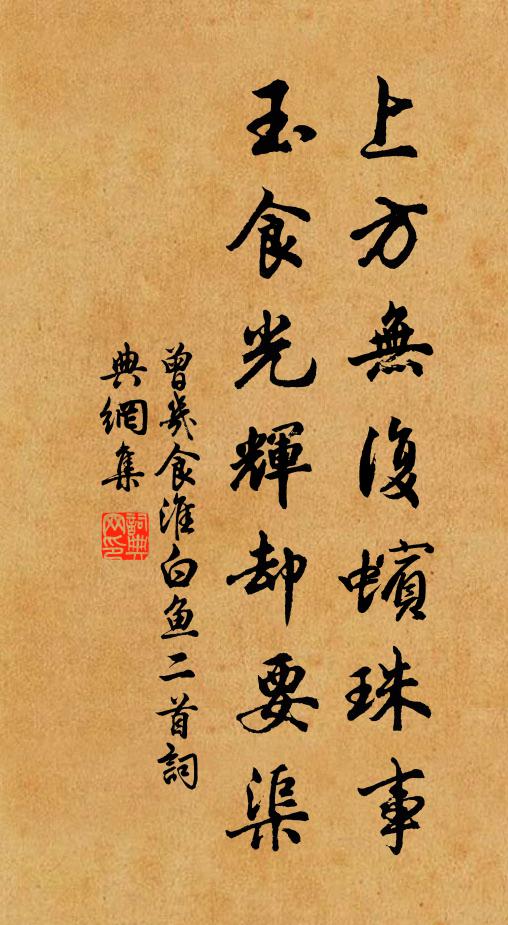 上方無復蠙珠事
玉食光輝却要渠
曾幾食淮白魚二首詞
典網集
詞典網印